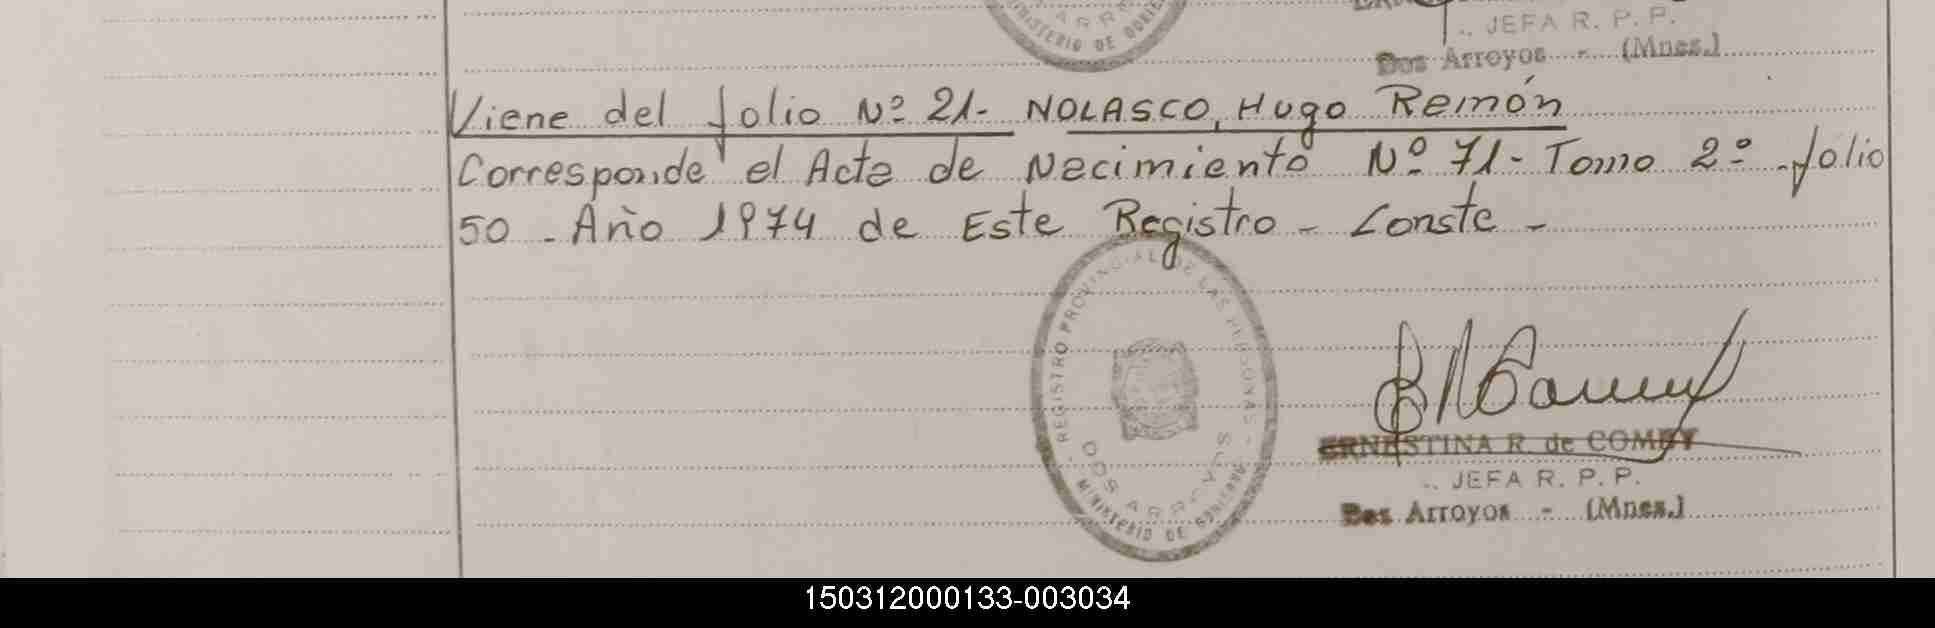 MINISTERIO DE GOBIERNO
JEFA R. P. P.
Dos Arroyos - (Mnes.)
Viene del folio Nº 21- NOLASCO, Hugo Ramón
Corresponde al Acta de Nacimiento Nº 71- Tomo 2º - folio
50 - Año 1974 de Este Registro - Conste -
REGISTRO PROVINCIAL DE LAS PERSONAS
DOS ARROYOS
MINISTERIO DE GOBIERNO
ERNESTINA R. de COMBY
JEFA R. P. P.
Dos Arroyos - (Mnes.)
150312000133-003034